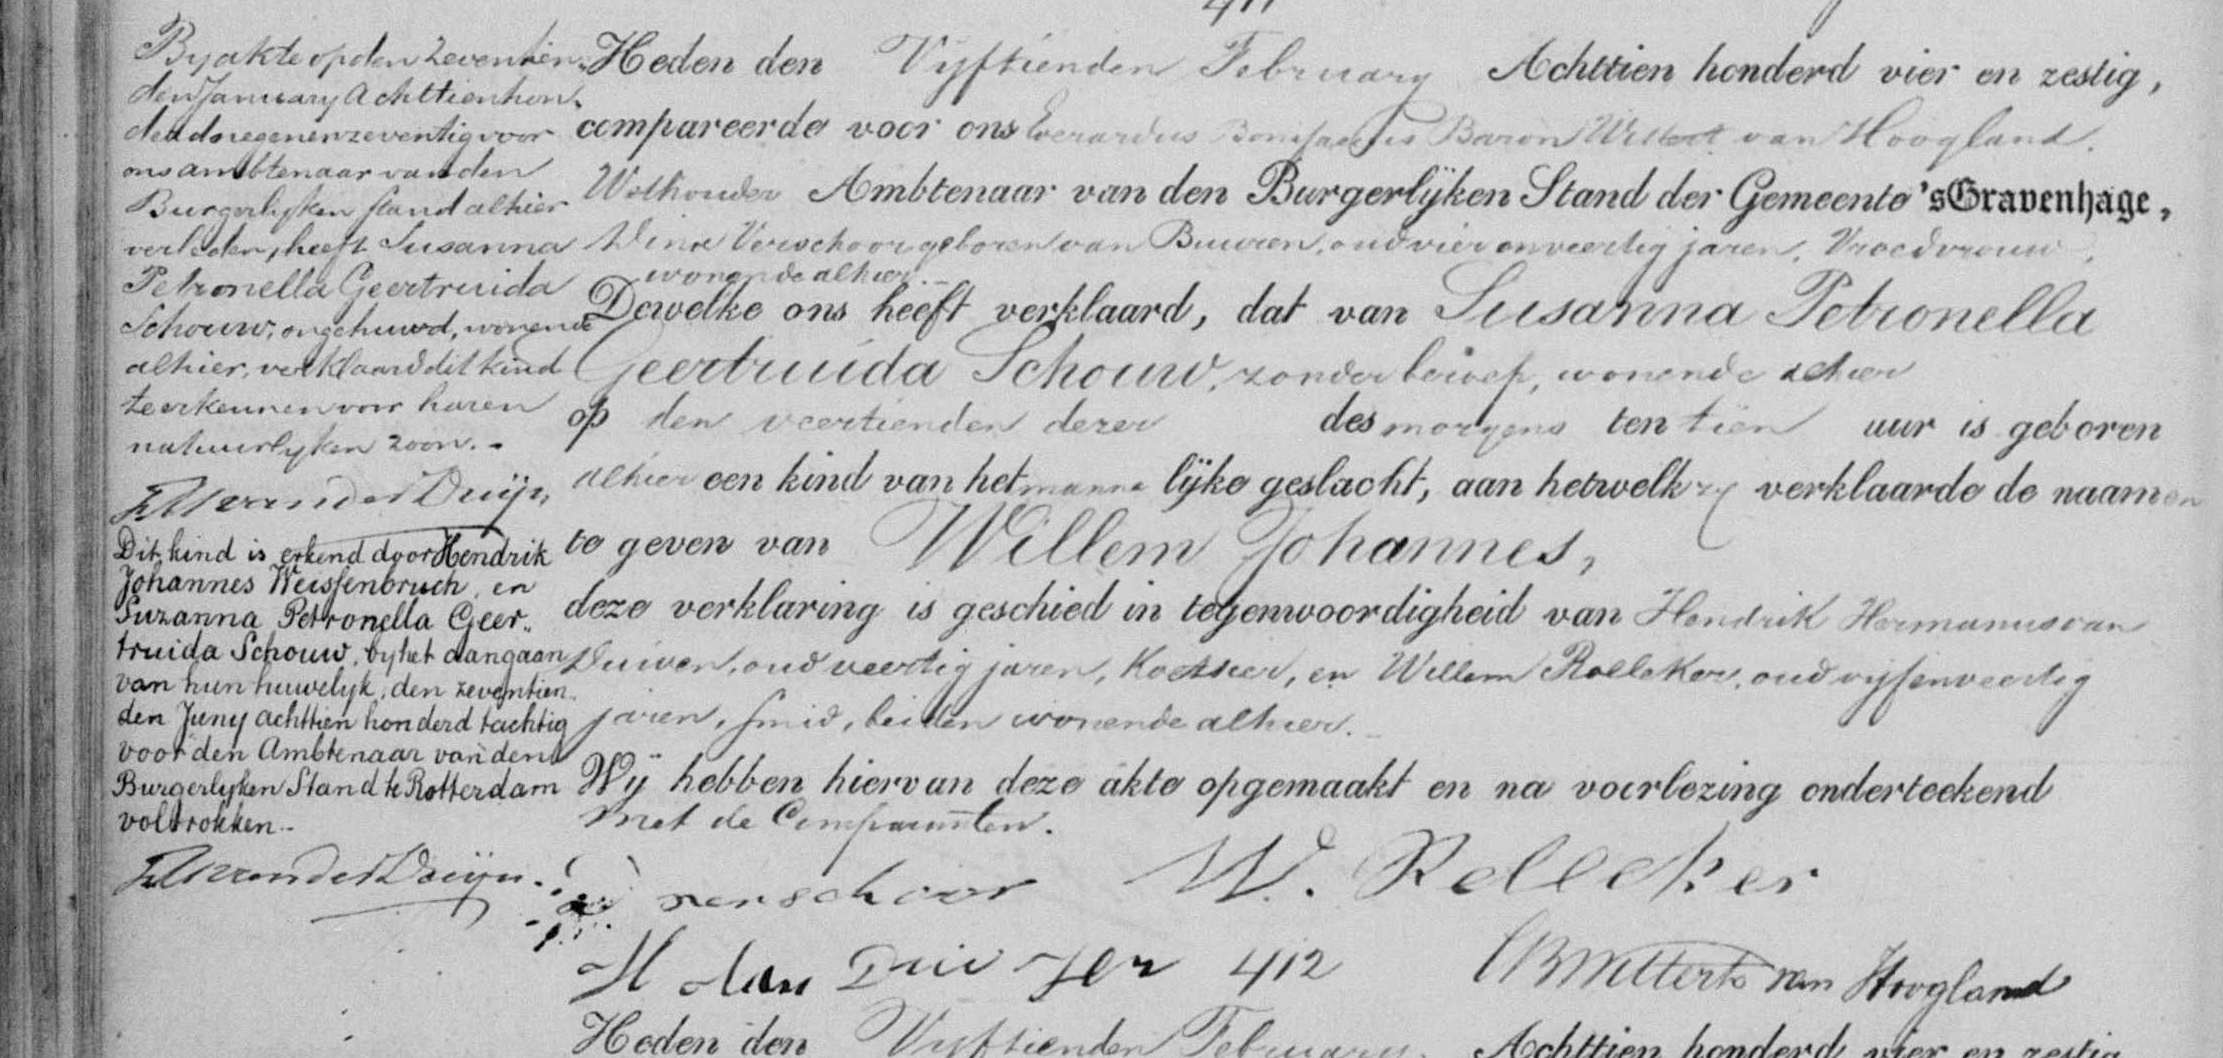 411
By akte op den zeventien-
den January Achttienhon-
derd negenenzeventig voor
ons ambtenaar van den
Burgerlyken stand alhier
verleden, heeft Susanna
Petronella Geertruida
Schouw, ongehuwd, wonende
alhier, verklaard dit kind
te erkennen voor haren
natuurlyken zoon.-
Dit kind is erkend door Hendrik
Johannes Weissenbruch, en
Suzanna Petronella Geer-
truida Schouw, by het aangaan
van hun huwelyk, den zeventien-
den Juny achttien honderd tachtig
voor den Ambtenaar van den
Burgerlyken Stand te Rotterdam
voltrokken.-
Heden den Vyftienden February Achttien honderd vier en zestig,
compareerde voor ons Everardus Bonifacius Baron Wittert van Hoogland.
Wethouder Ambtenaar van den Burgerlijken Stand der Gemeente 'sGravenhage,
Dina Verschoor geboren van Buuren, oud vier en veertig jaren, Vroedvrouw,
wonende alhier.-
Dewelke ons heeft verklaard, dat van Susanna Petronella
Geertruida Schouw, zonder beroep, wonende alhier
op den veertienden dezer des morgens ten tien uur is geboren
alhier een kind van het manne lijke geslacht, aan hetwelk zy verklaarde de naamen
te geven van Willem Johannes,
deze verklaring is geschied in tegenwoordigheid van Hendrik Hermanus van
Duiven, oud veertig jaren, Koetsier, en Willem Rolleker, oud vyfenveertig
jaren, smid, beiden wonende alhier.-
Wij hebben hiervan deze akte opgemaakt en na voorlezing onderteekend
met de Comparanten.
verschoor W. Rellecker
H van Duiven 412 Wittert van Hoogland
Heden den Vyftienden February Achttien honderd vier en zestig